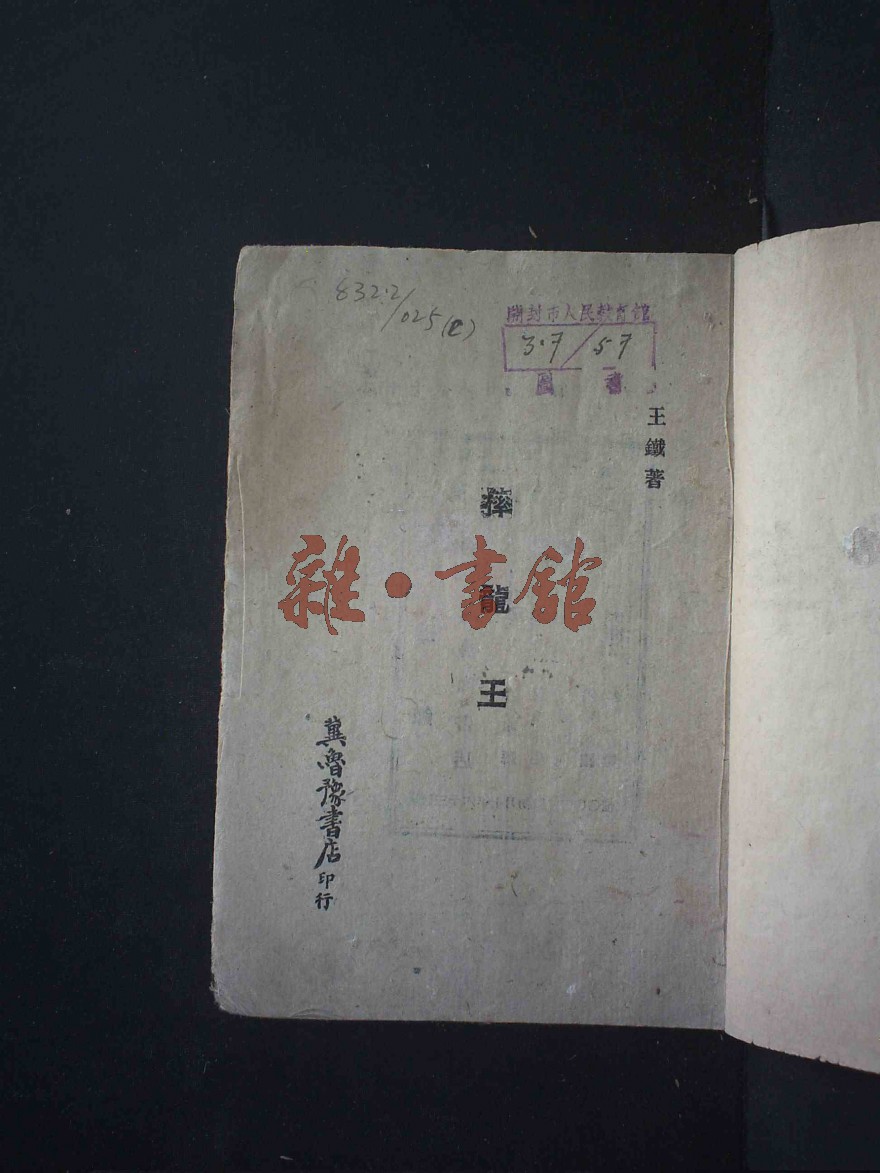 832.2/025(2)
開封市人民教育館
3.7/57
圖書
王鐵著
摔龍王
雜·書館
冀魯豫書店印行